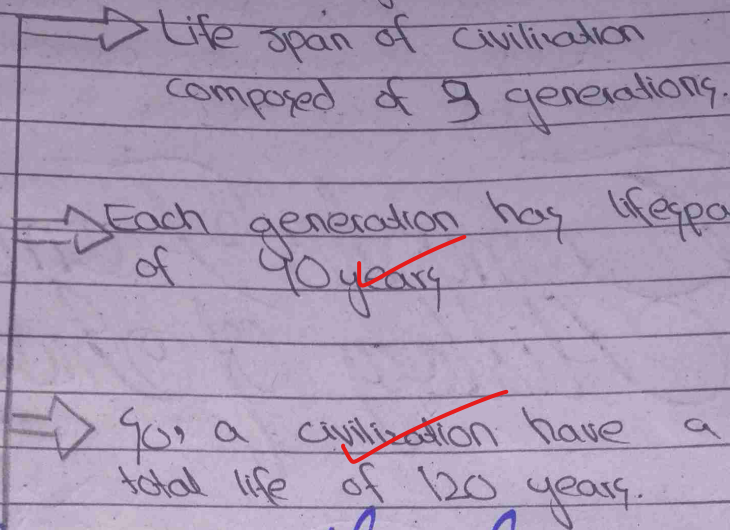 Life span of civilization
composed of 3 generations.
Each generation has lifespa
of 40 years
So, a civilization have a
total life of 120 years.